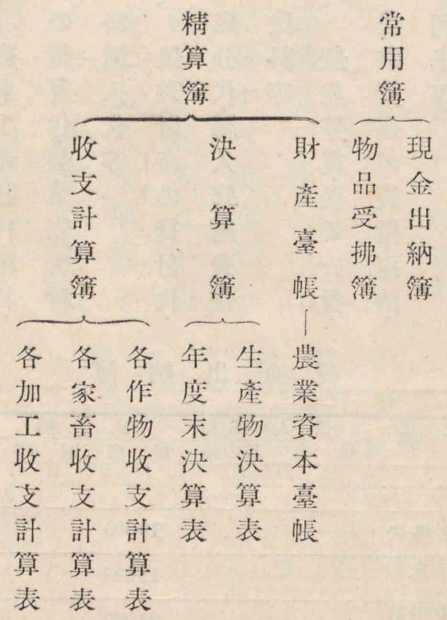 常用簿
現金出納簿
物品受拂簿
精算簿
財產臺帳
農業資本臺帳
決算簿
生產物決算表
年度末決算表
收支計算簿
各作物收支計算表
各家畜收支計算表
各加工收支計算表